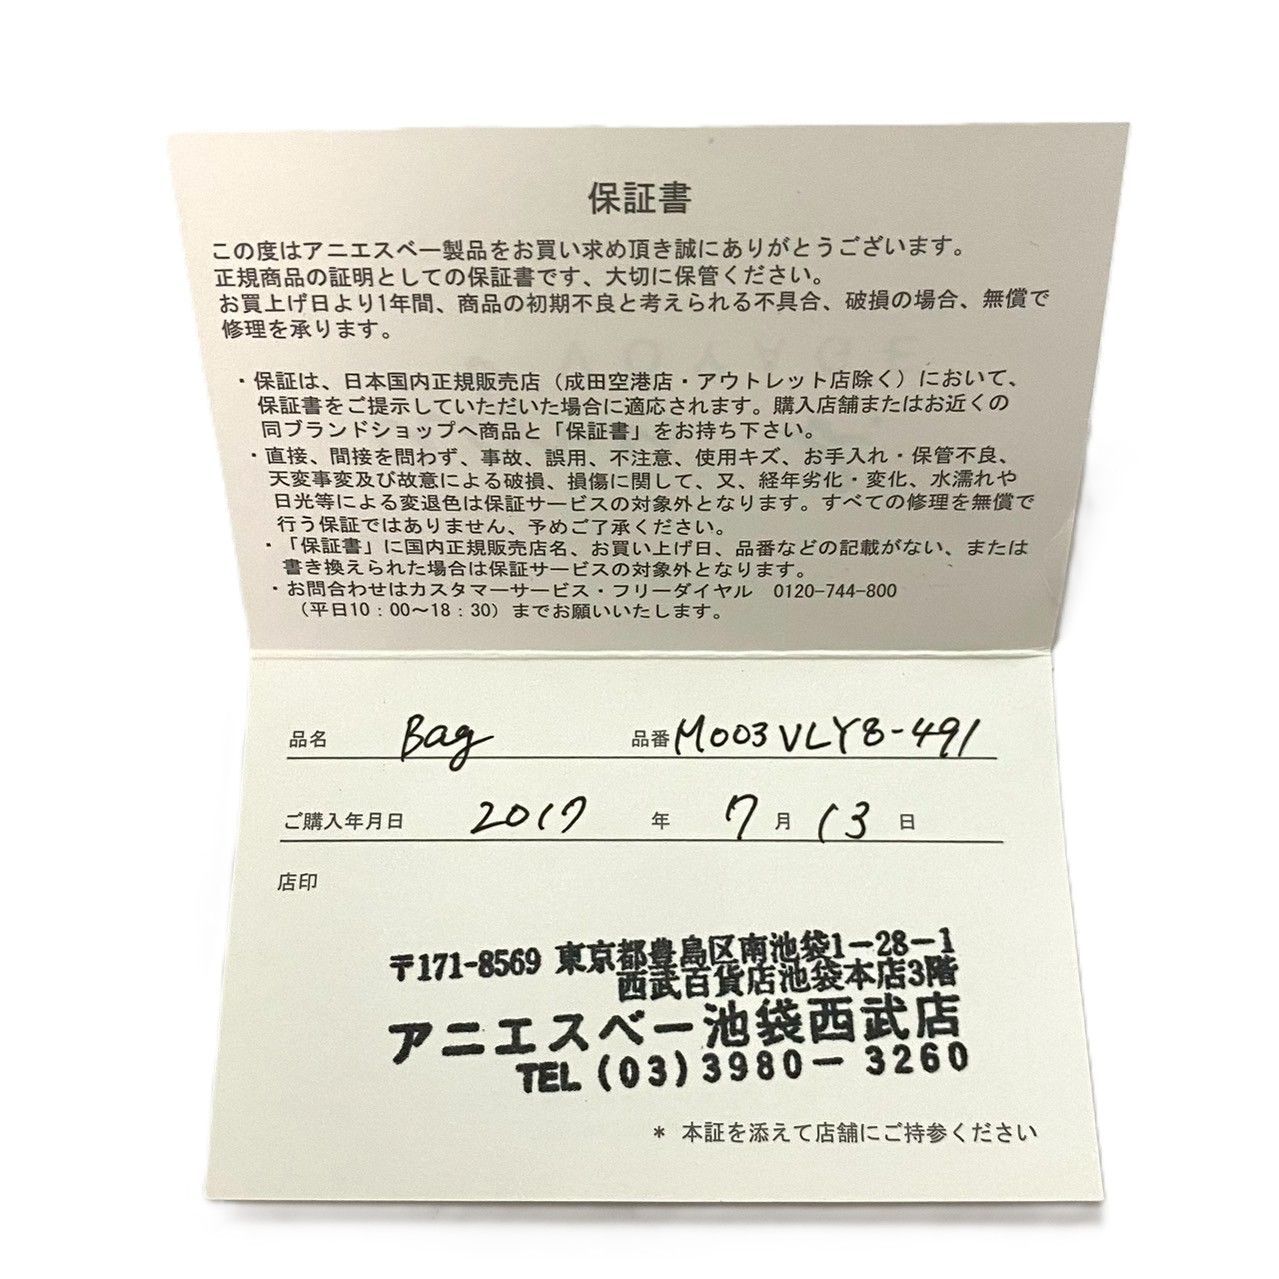 保証書
この度はアニエスベー製品をお買い求め頂き誠にありがとうございます。
正規商品の証明としての保証書です、大切に保管ください。
お買上げ日より1年間、商品の初期不良と考えられる不具合、破損の場合、無償で
修理を承ります。
・保証は、日本国内正規販売店（成田空港店・アウトレット店除く）において、
保証書をご提示していただいた場合に適応されます。購入店舗またはお近くの
同ブランドショップへ商品と「保証書」をお持ち下さい。
・直接、間接を問わず、事故、誤用、不注意、使用キズ、お手入れ・保管不良、
天変事変及び故意による破損、損傷に関して、又、経年劣化・変化、水濡れや
日光等による変退色は保証サービスの対象外となります。すべての修理を無償で
行う保証ではありません、予めご了承ください。
・「保証書」に国内正規販売店名、お買い上げ日、品番などの記載がない、または
書き換えられた場合は保証サービスの対象外となります。
・お問合わせはカスタマーサービス・フリーダイヤル 0120-744-800
（平日10：00～18：30）までお願いいたします。
品名 Bag 品番 M003VLY8-491
ご購入年月日 2017 年 7 月 13 日
店印
〒171-8569 東京都豊島区南池袋1-28-1
西武百貨店池袋本店3階
アニエスベー池袋西武店
TEL (03) 3980-3260
* 本証を添えて店舗にご持参ください